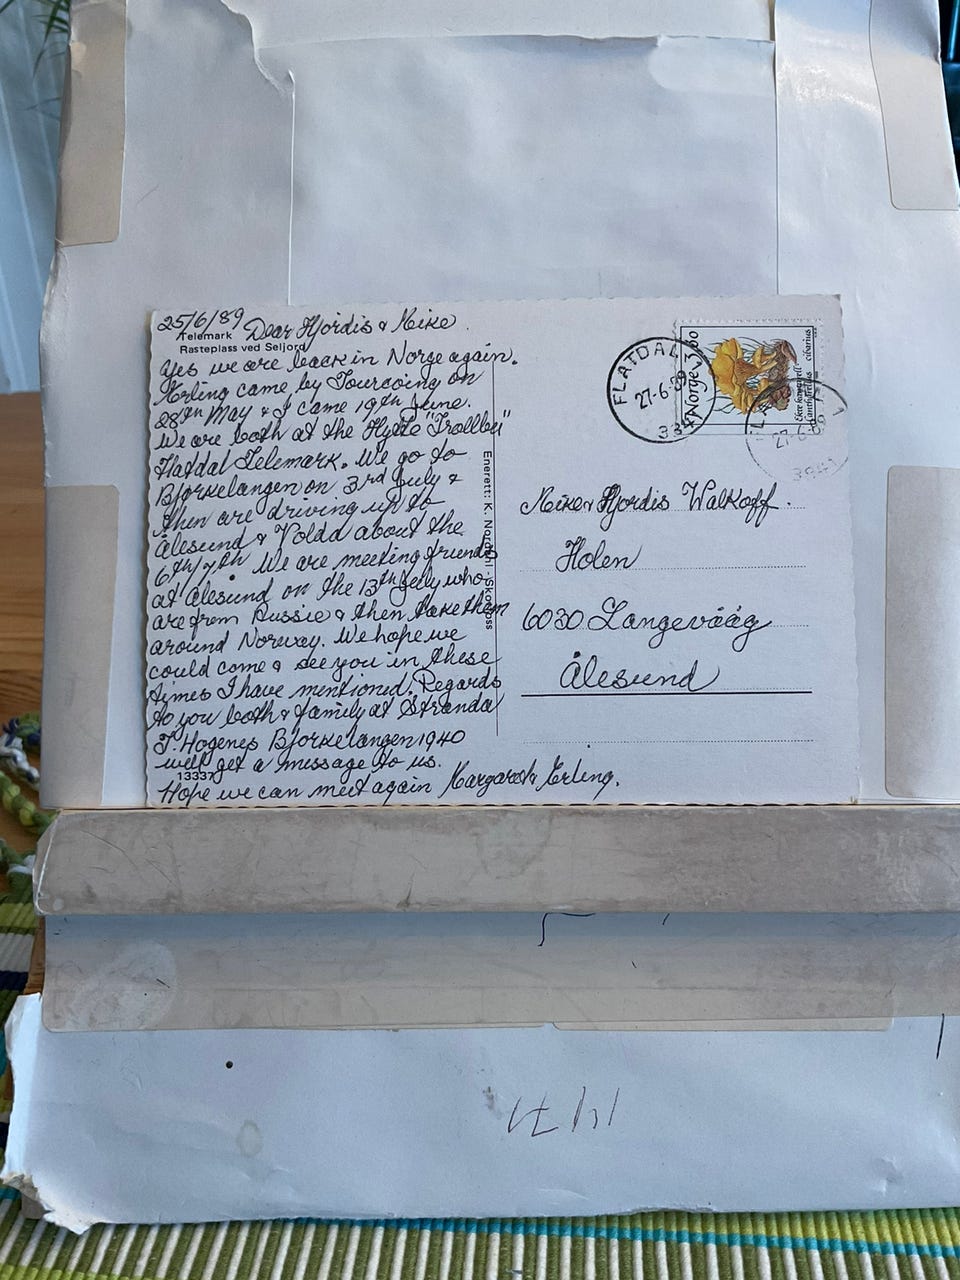 25/6/89 Dear Hjordis & Mike
Telemark
Rasteplass ved Seljord
Yes we are back in Norge again.
Erling came by Tourcoing on
28th May & I came 19th June.
We are both at the Hytte "Trollbu"
Flatdal Telemark. We go to
Bjorkelangen on 3rd July &
then are driving up to
Ålesund & Volda about the
6th/7th. We are meeting friends
at Ålesund on the 13th July who
are from Russie & then take them
around Norway. We hope we
could come & see you in these
times I have mentioned. Regards
to you both & family at Stranda
T. Hogenes Bjorkelangen 1940
will get a message to us.
13337
Hope we can meet again Margaret & Erling.
Enerett: K. Nordahl - Skotfoss
FLATDAL
27-6-89
Norge 3.80
Ekte kantarell
Cantharellus cibarius
27-6-89
3841
Mike & Hjordis Walkoff.
Holen
6030 Langevåg
Ålesund